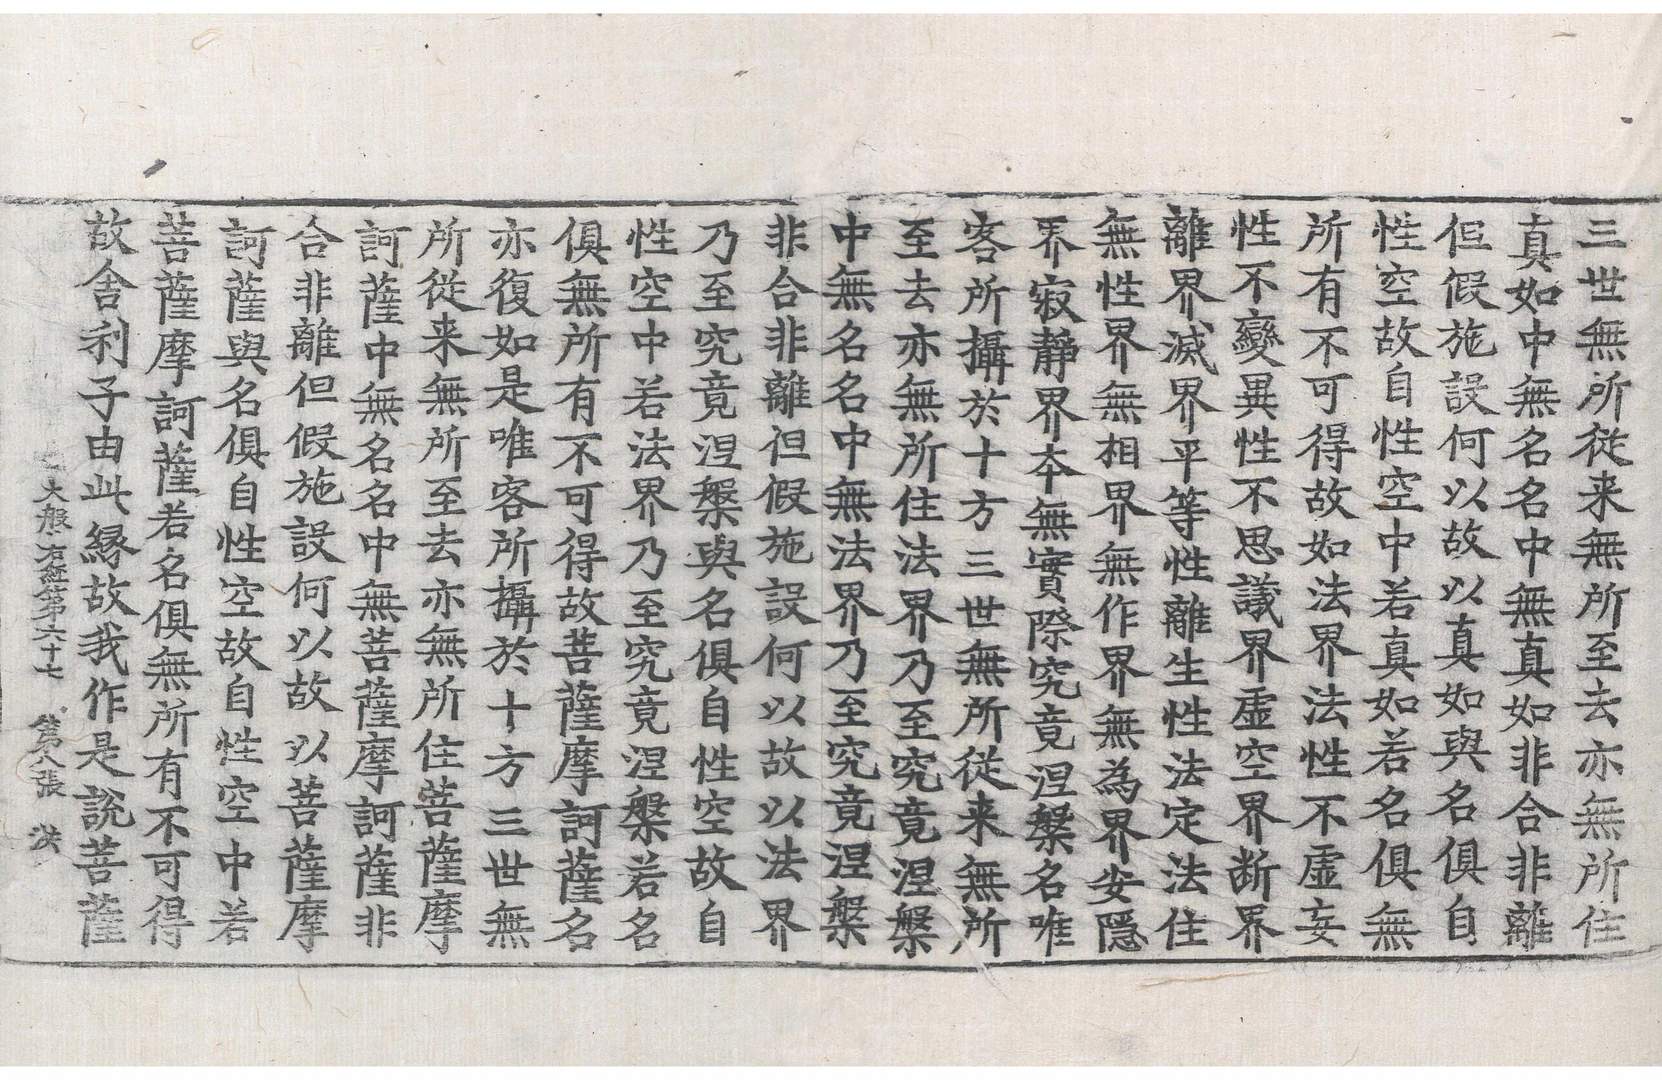 三世無所從来無所至去亦無所住
真如中無名名中無真如非合非離
但假施設何以故以真如與名俱自
性空故自性空中若真如若名俱無
所有不可得故如法界法性不虛妄
性不變異性不思議界虛空界断界
離界滅界平等性離生性法定法住
無性界無相界無作界無為界安隱
界寂靜界本無實際究竟涅槃名唯
客所攝於十方三世無所從来無所
至去亦無所住法界乃至究竟涅槃
中無名名中無法界乃至究竟涅槃
非合非離但假施設何以故以法界
乃至究竟涅槃與名俱自性空故自
性空中若法界乃至究竟涅槃若名
俱無所有不可得故菩薩摩訶薩名
亦復如是唯客所攝於十方三世無
所從来無所至去亦無所住菩薩摩
訶薩中無名名中無菩薩摩訶薩非
合非離但假施設何以故以菩薩摩
訶薩與名俱自性空故自性空中若
菩薩摩訶薩若名俱無所有不可得
故舍利子由此縁故我作是說菩薩
大般若經第六十七 第八張 洪